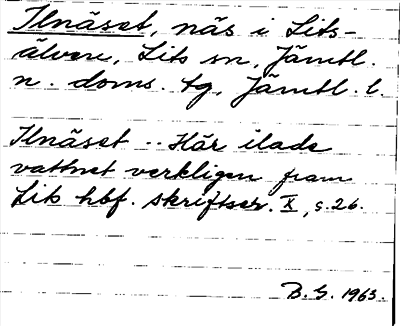 Ilnäset, näs i Lits-
älven, Lits sn, Jämtl.
n. doms. tg, Jämtl. l.
Ilnäset -- Här ilade
vattnet verkligen fram
Lits hbf. skriftser. X, s. 26.
B. G. 1963.